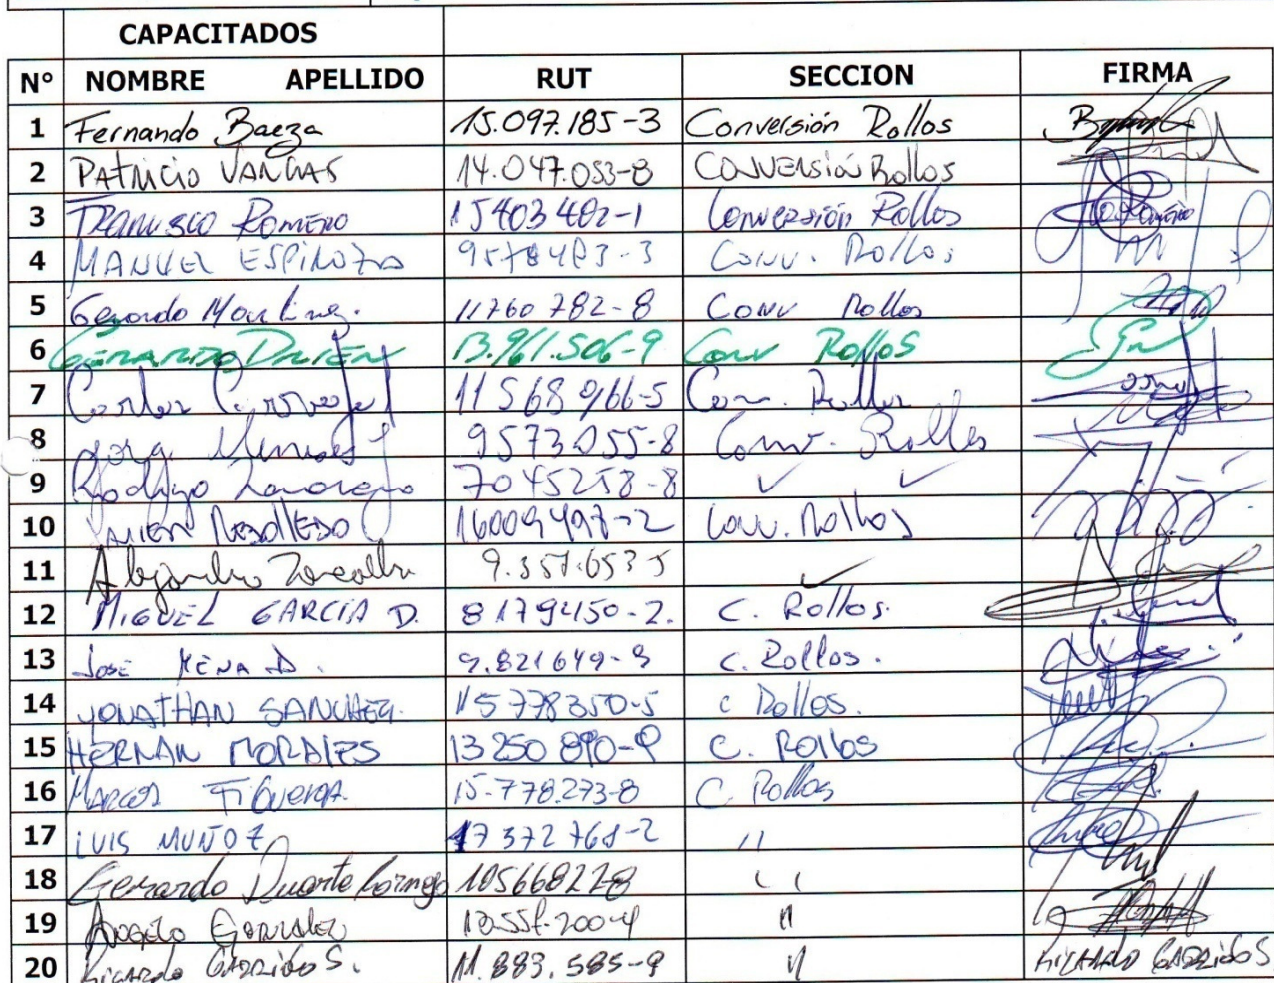 CAPACITADOS
N° NOMBRE APELLIDO RUT SECCION FIRMA
1 Fernando Baeza 15.097.185-3 Conversión Rollos
2 PATRICIO VARGAS 14.047.053-8 CONVERSIÓN Rollos
3 Francisco Romero 15403402-1 Conversión Rollos
4 MANUEL ESPINOZA Conv. Rollos
5 Gerardo Martinez. 11760782-8 Conv Rollos
6 GERARDO 13.961.506-9 Conv Rollos
7 Carlos Carvajal 11568966-5 Conv. Rollos
8 Jorge 9573055-8 Conv. Rollos
9 Rodrigo 7045258-8 ✓ ✓
10 JAVIER REBOLLEDO 16009497-2 Conv. Rollos
11 Alejandro ✓
12 MIGUEL GARCIA D. 8179450-2. C. Rollos.
13 JOSE MENA D. 9.821649-9 C. Rollos.
14 JONATHAN SANCHEZ. 15778350-5 C Rollos.
15 HERNAN MORALES 13250890-9 C. Rollos
16 MARCOS FIGUEROA. 15-778.273-8 C. Rollos
17 LUIS MUÑOZ 17372768-2 "
18 Gerardo Duarte Cornejo 105668228 "
19 ANGELO GONZALEZ "
20 RICARDO GARRIDO S. 11.883.585-9 " RICARDO GARRIDO S